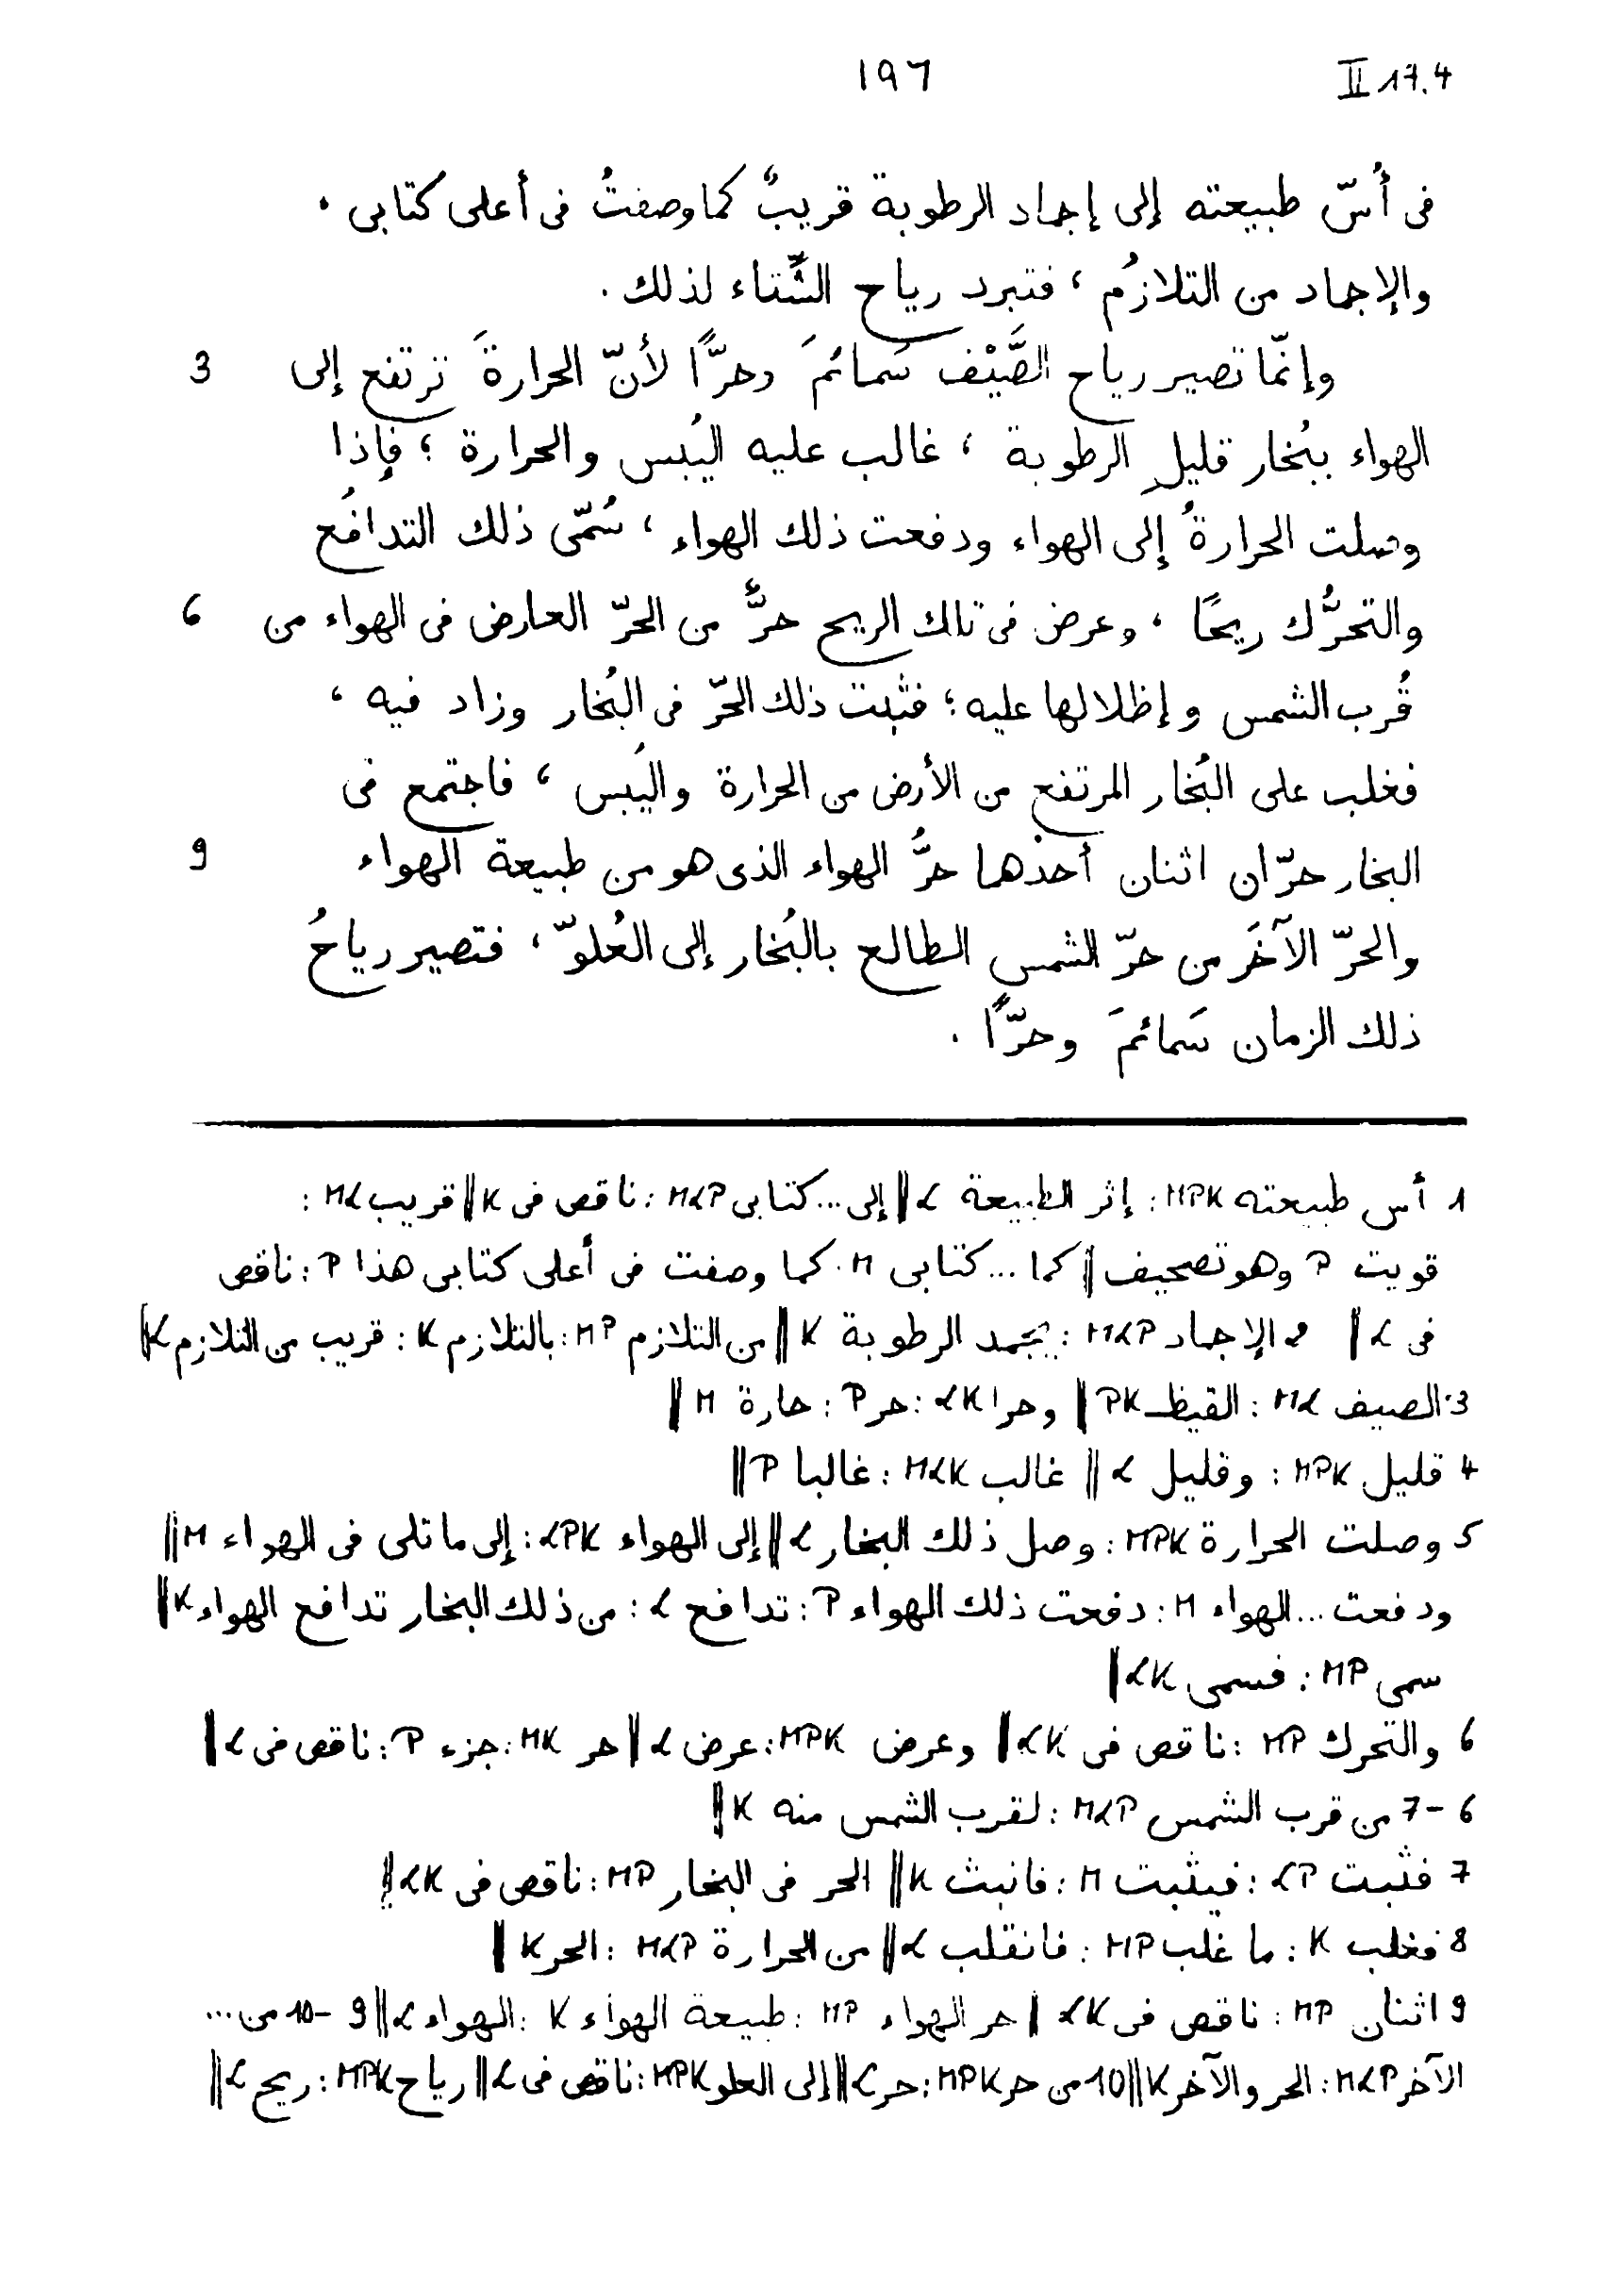 ١٩٦ II 17.4
فى أُسّ طبيعته إلى إجماد الرطوبة قريبٌ كما وصفتُ فى أعلى كتابى ،
والإجماد من التلازُم ، فتبرد رياح الشِّتاء لذلك .
وإنّما تصير رياح الصَّيْف سَمائمَ وحرًّا لأنّ الحرارةَ ترتفع إلى 3
الهواء ببُخار قليلِ الرطوبة ، غالب عليه اليُبس والحرارة ؛ فإذا
وصلت الحرارةُ إلى الهواء ودفعت ذلك الهواء ، سُمّى ذلك التدافُع
والتحرُّك ريحًا ، وعرض فى تلك الريح حرٌّ من الحرّ العارض فى الهواء من 6
قُرب الشمس وإظلالها عليه ؛ فثبت ذلك الحرّ فى البُخار وزاد فيه ،
فغلب على البُخار المرتفع من الأرض من الحرارة واليُبس ، فاجتمع فى
البخار حرّان اثنان أحدُهما حرُّ الهواء الذى هو من طبيعة الهواء 9
والحرّ الآخَر من حرّ الشمس الطالع بالبُخار إلى العُلوّ ، فتصير رياحُ
ذلك الزمان سَمائمَ وحرًّا .
1 أس طبيعته MPK : إثر الطبيعة L || إلى ... كتابى MLP : ناقص فى K || قريب ML :
قويت P وهو تصحيف || كما ... كتابى M . كما وصفت فى أعلى كتابى هذا P : ناقص
فى L || 2 الإجماد MLP : يجمد الرطوبة K || من التلازم MP : بالتلازم K : قريب من التلازم K ||
3 الصيف ML : القيظ PK || وحرا LK : حر P : حارة M ||
4 قليل MPK : وقليل L || غالب MLK : غالبا P ||
5 وصلت الحرارة MPK : وصل ذلك البخار L || إلى الهواء LPK : إلى ما تلى فى الهواء M ||
ودفعت ... الهواء M : دفعت ذلك الهواء P : تدافع L : من ذلك البخار تدافع الهواء K ||
سمى MP : فسمى LK ||
6 والتحرك MP : ناقص فى LK || وعرض MPK : عرض L || حر MK : جزء P : ناقص فى L ||
6-7 من قرب الشمس MLP : لقرب الشمس منه K ||
7 فثبت LP : فيثبت M : فانبث K || الحر فى البخار MP : ناقص فى LK ||
8 فغلب K : ما غلب MP : فانقلب L || من الحرارة MLP : الحر K ||
9 اثنان MP : ناقص فى LK || حر الهواء MP : طبيعة الهواء K : الهواء L || 9-10 من ...
الآخر MLP : الحر والآخر K || 10 من حر MPK : حر L || إلى العلو MPK : ناقص فى L || رياح MPK : ريح L ||